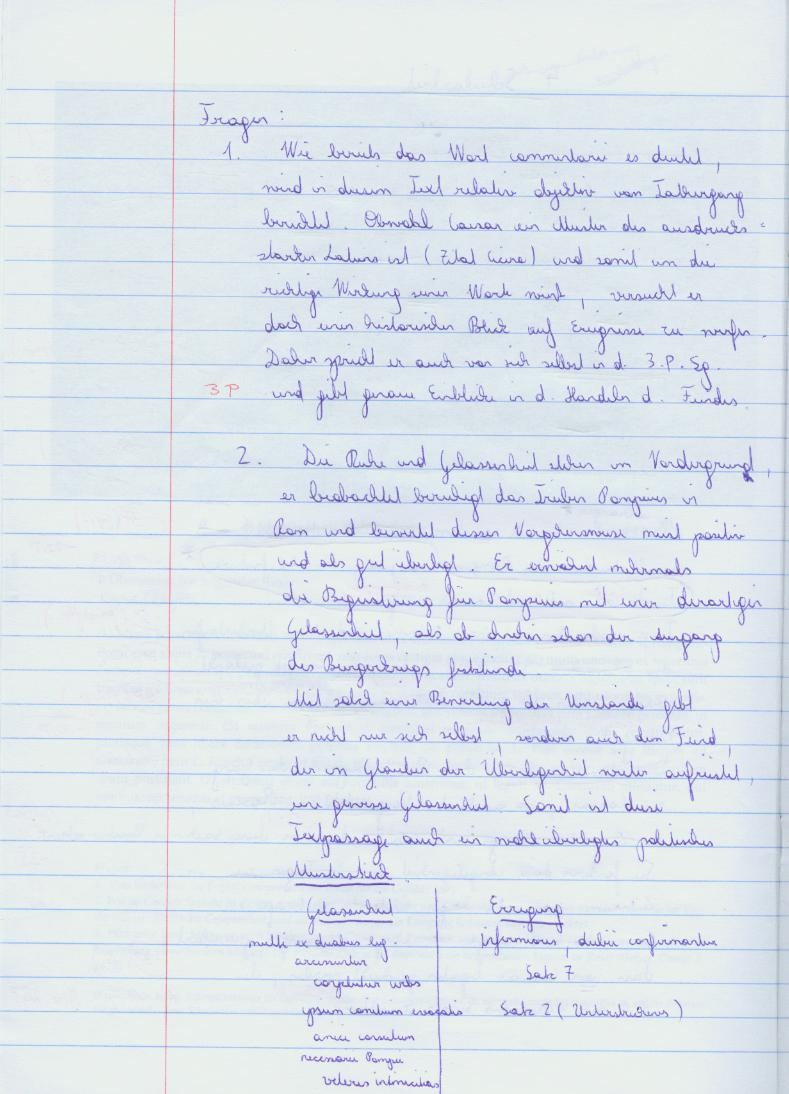 Fragen:
1. Wie bereits das Wort commentarii es deutet,
wird in diesem Text relativ objektiv vom Tathergang
berichtet. Obwohl Caesar ein Muster des ausdrucks=
starken Lateins ist (Zitat Cicero) und somit um die
richtige Wirkung seiner Worte weiß, versucht er
doch einen historischen Blick auf Ereignisse zu werfen.
Daher spricht er auch von sich selbst in d. 3.P.Sg.
3P und gibt genaue Einblicke in d. Handeln d. Feindes.
2. Die Ruhe und Gelassenheit stehen im Vordergrund,
er beobachtet beruhigt das Treiben Pompeius in
Rom und bewertet dessen Vorgehensweise meist positiv
und als gut überlegt. Er erwähnt mehrmals
die Begeisterung für Pompeius mit einer derartigen
Gelassenheit, als ob ohnehin schon der Ausgang
des Bürgerkriegs feststünde.
Mit solch einer Bewertung der Umstände gibt
er nicht nur sich selbst, sondern auch dem Feind,
der im Glauben der Überlegenheit weiter aufrüstet,
eine gewisse Gelassenheit. Somit ist diese
Textpassage auch ein wohlüberlegtes politisches
Musterstück.
Gelassenheit Erregung
multi ex duabus leg. infirmiores, dubii confirmantur
arcessuntur Satz 7
completur urbs
ipsum comitium Satz 2 (Unterstreichens)
amici consulum
necessarii Pompei
veteres inimicitias